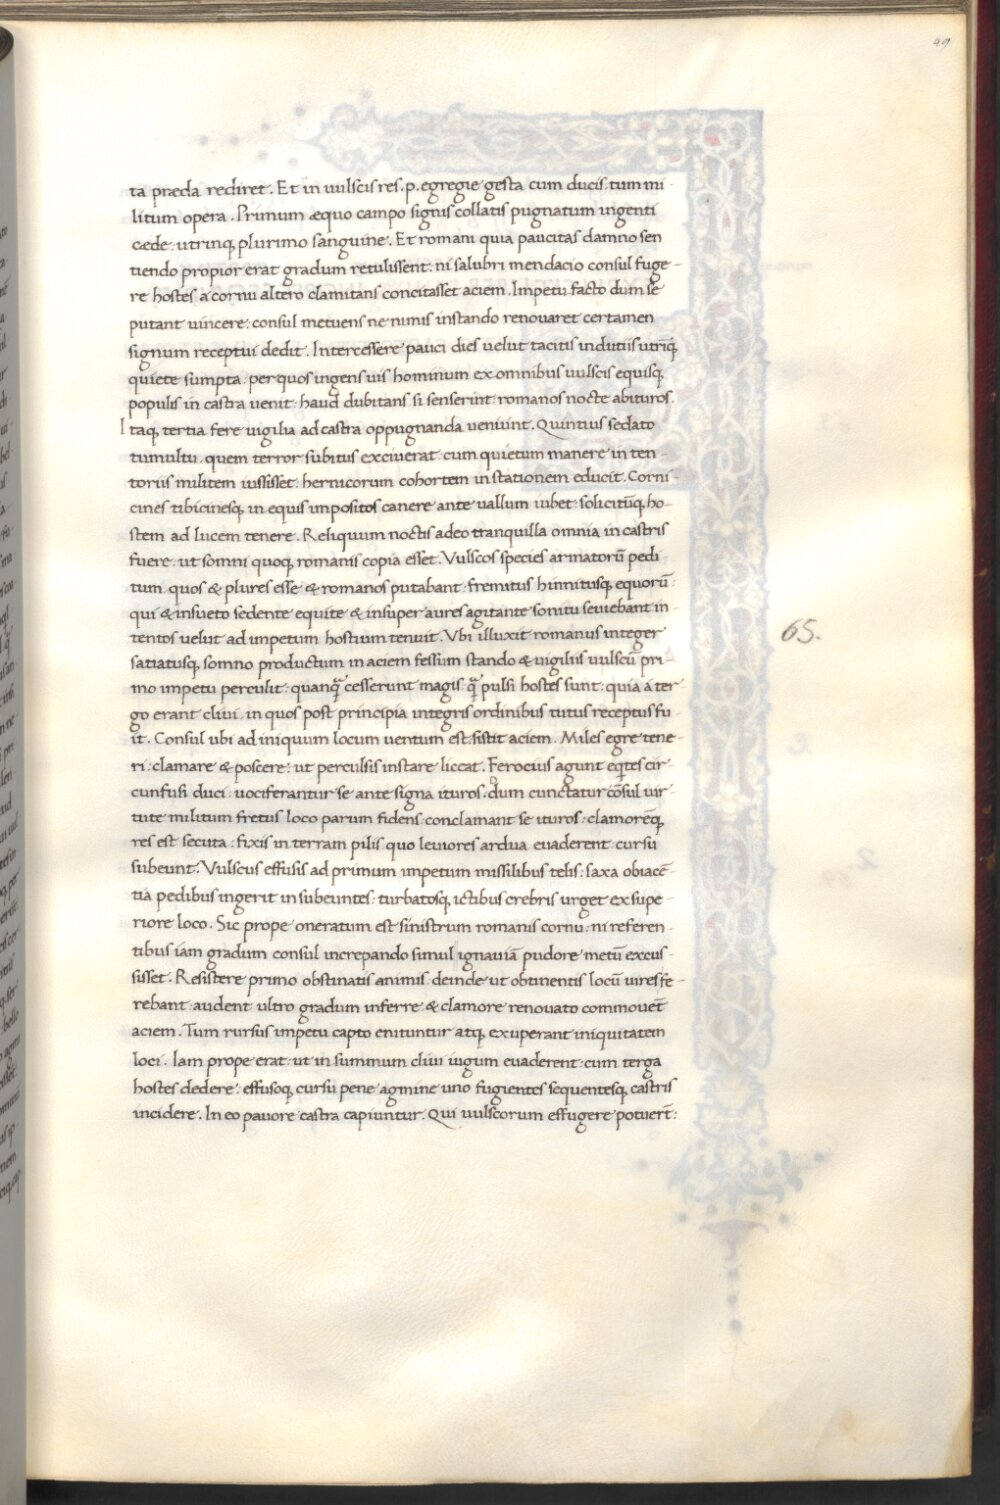 49
ta præda rediret. Et in uulscis res. p. egregie gesta cum ducis tum mi-
litum opera. Primum æquo campo signis collatis pugnatum ingenti
cæde: utrinq; plurimo sanguine. Et romani quia paucitas damno sen
tiendo propior erat gradum retulissent: ni salubri mendacio consul fuge-
re hostes a cornu altero clamitans concitasset aciem. Impetu facto dum se
putant uincere: consul metuens ne nimis instando renouaret certamen
signum receptui dedit. Intercessere pauci dies uelut tacitis indutiis utriq̃
quiete sumpta: per quos ingens uis hominum ex omnibus uulscis equisq;
populis in castra uenit: haud dubitans si senserint romanos nocte abituros.
Itaq; tertia fere uigilia ad castra oppugnanda ueniunt. Quintius sedato
tumultu quem terror subitus exciuerat: cum quietum manere in ten-
toriis militem iussisset: hernicorum cohortem in stationem educit. Corni-
cines tibicinesq; in equis impositos canere ante uallum iubet: solicitũq; ho-
stem ad lucem tenere. Reliquum noctis adeo tranquilla omnia in castris
fuere: ut somni quoq; romanis copia esset. Vulscos species armatorũ pedi-
tum quos & plures esse & romanos putabant: fremitus hinnitusq; equorũ:
qui & insueto sedente equite & insuper aures agitante sonitu seuiebant in-
tentos uelut ad impetum hostium tenuit. Vbi illuxit romanus integer
satiatusq; somno productum in aciem fessum stando & uigiliis uulscũ pri-
mo impetu perculit: quanq̃ cesserunt magis q̃ pulsi hostes sunt: quia a ter-
go erant cliui in quos post principia integris ordinibus tutus receptus fu-
it. Consul ubi ad iniquum locum uentum est: sistit aciem. Miles egre tene-
ri: clamare & poscere: ut perculsis instare liceat. Ferocius agunt eq̃tes cir-
cunfusi duci uociferantur se ante signa ituros. dum cunctatur cõsul uir-
tute militum fretus loco parum fidens: conclamant se ituros: clamorẽq;
res est secuta: fixis in terram pilis quo leuiores ardua euaderent: cursu
subeunt. Vulscus effusis ad primum impetum missilibus telis: saxa obiacẽ-
tia pedibus ingerit in subeuntes: turbatosq; ictibus crebris urget ex supe-
riore loco. Sic prope oneratum est sinistrum romanis cornu: ni referen-
tibus iam gradum consul increpando simul ignauiã pudore metũ excus-
sisset. Resistere primo obstinatis animis: deinde ut obtinentis locũ uires fe-
rebant: audent ultro gradum inferre & clamore renouato commouẽt
aciem. Tum rursus impetu capto enituntur atq; exuperant iniquitatem
loci. Iam prope erat: ut in summum cliui iugum euaderent: cum terga
hostes dedere: effusoq; cursu pene agmine uno fugientes sequentesq; castris
incidere. In eo pauore castra capiuntur. Qui uulscorum effugere potuert̃:
65.